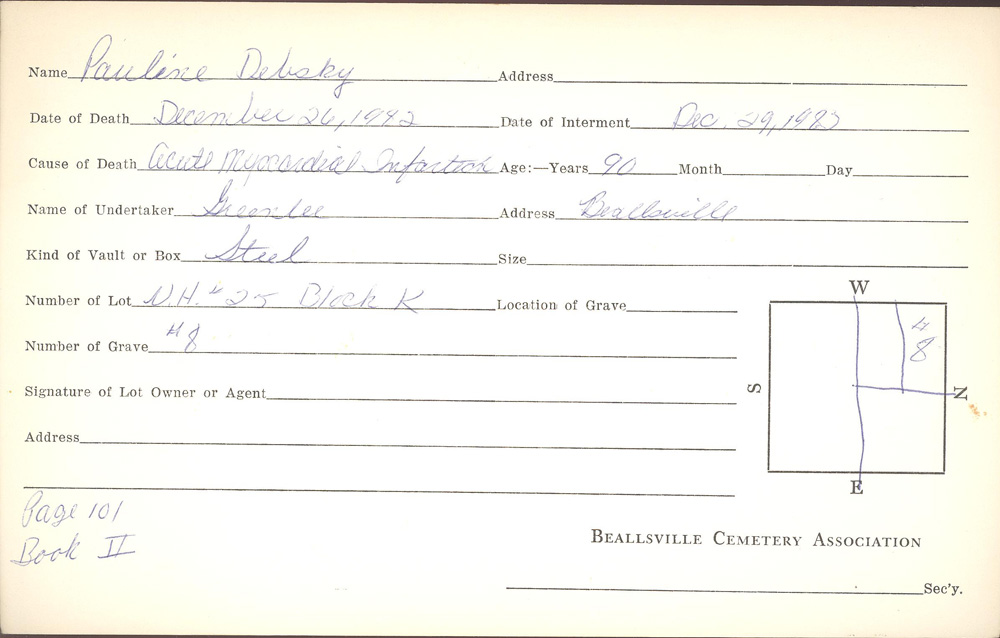 Name Pauline Debsky Address
Date of Death December 26, 1992 Date of Interment Dec. 29, 1992
Cause of Death Acute Myocardial Infarction Age:—Years 90 Month Day
Name of Undertaker Greenlee Address Beallsville
Kind of Vault or Box Steel Size
Number of Lot N.H. # 25 Block K Location of Grave
Number of Grave #8
Signature of Lot Owner or Agent
Address
W
S
N
E
#8
Page 101
Book II
BEALLSVILLE CEMETERY ASSOCIATION
Sec'y.